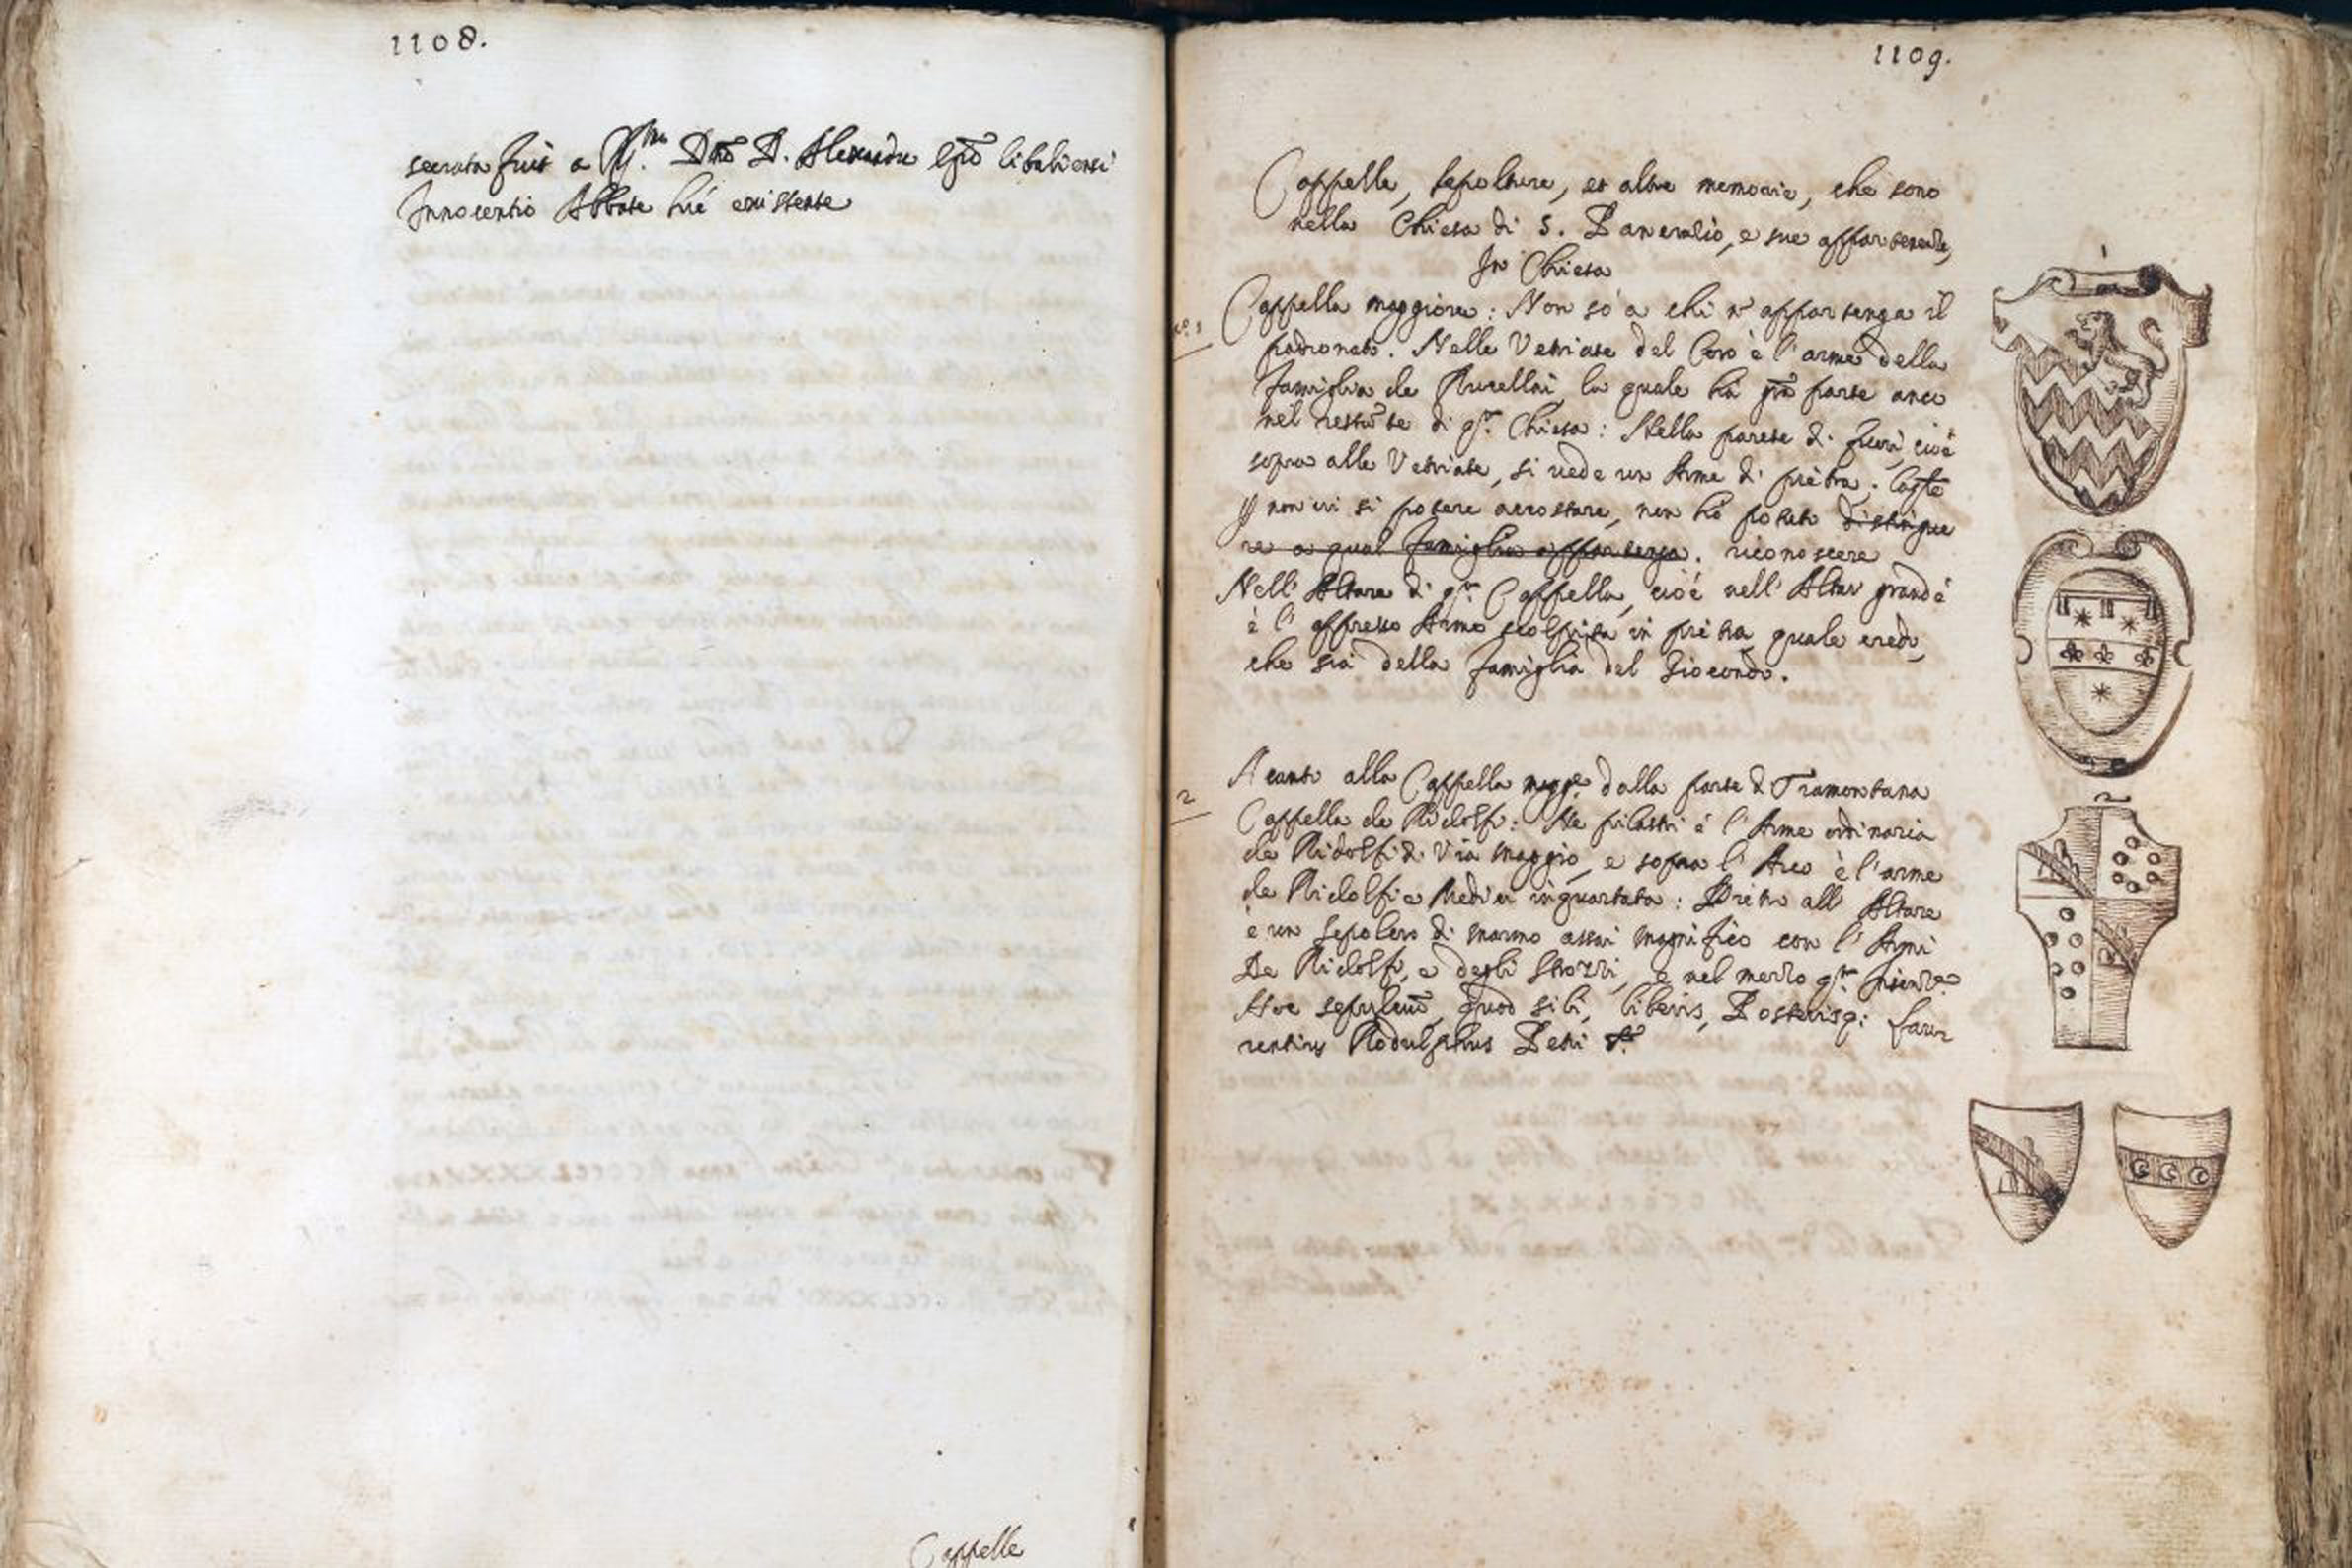 1108.
secrata fuit a R.mo Dno D. Alexandro Epo libaliensi
Innocentio Abbate hic existente
Cappelle
1109.
Cappelle, sepolture, et altre memorie, che sono
nella Chiesa di S. Pancrazio, e sue appartenenze,
In Chiesa
1
n.o 1 Cappella maggiore: Non so a chi n' appartenga il
padronato. Nelle Vetriate del Coro è l'arme della
famiglia de Rucellai, la quale ha gra parte anco
nel restante di q.ta Chiesa: Nella parete di fuori, cioè
sopra alle Vetriate, si vede un Arme di pietra.
non vi si potere accostare, non ho potuto distingue
re a qual famiglia appartenga. riconoscere
Nell' Altare di q.ta Cappella, cioè nell' Altar grande
è l' appresso Arme scolpita in pietra, quale credo,
che sia della famiglia del Giocondo.
2
2 Acanto alla Cappella magg.e dalla parte di Tramontana
Cappella de Ridolfi: Ne pilastri é l' Arme ordinaria
de Ridolfi di Via Maggio, e sopra l' Arco è l'arme
de Ridolfi e Medici inquartata: Drieto all' Altare
è un sepolcro di marmo assai magnifico con l' Armi
De Ridolfi, e degli Strozzi, e nel mezzo q.ta Inscrize.
Hoc sepulcru, quod sibi, liberis, Posterisq: Laur
rentius Rodulphus Petri F.